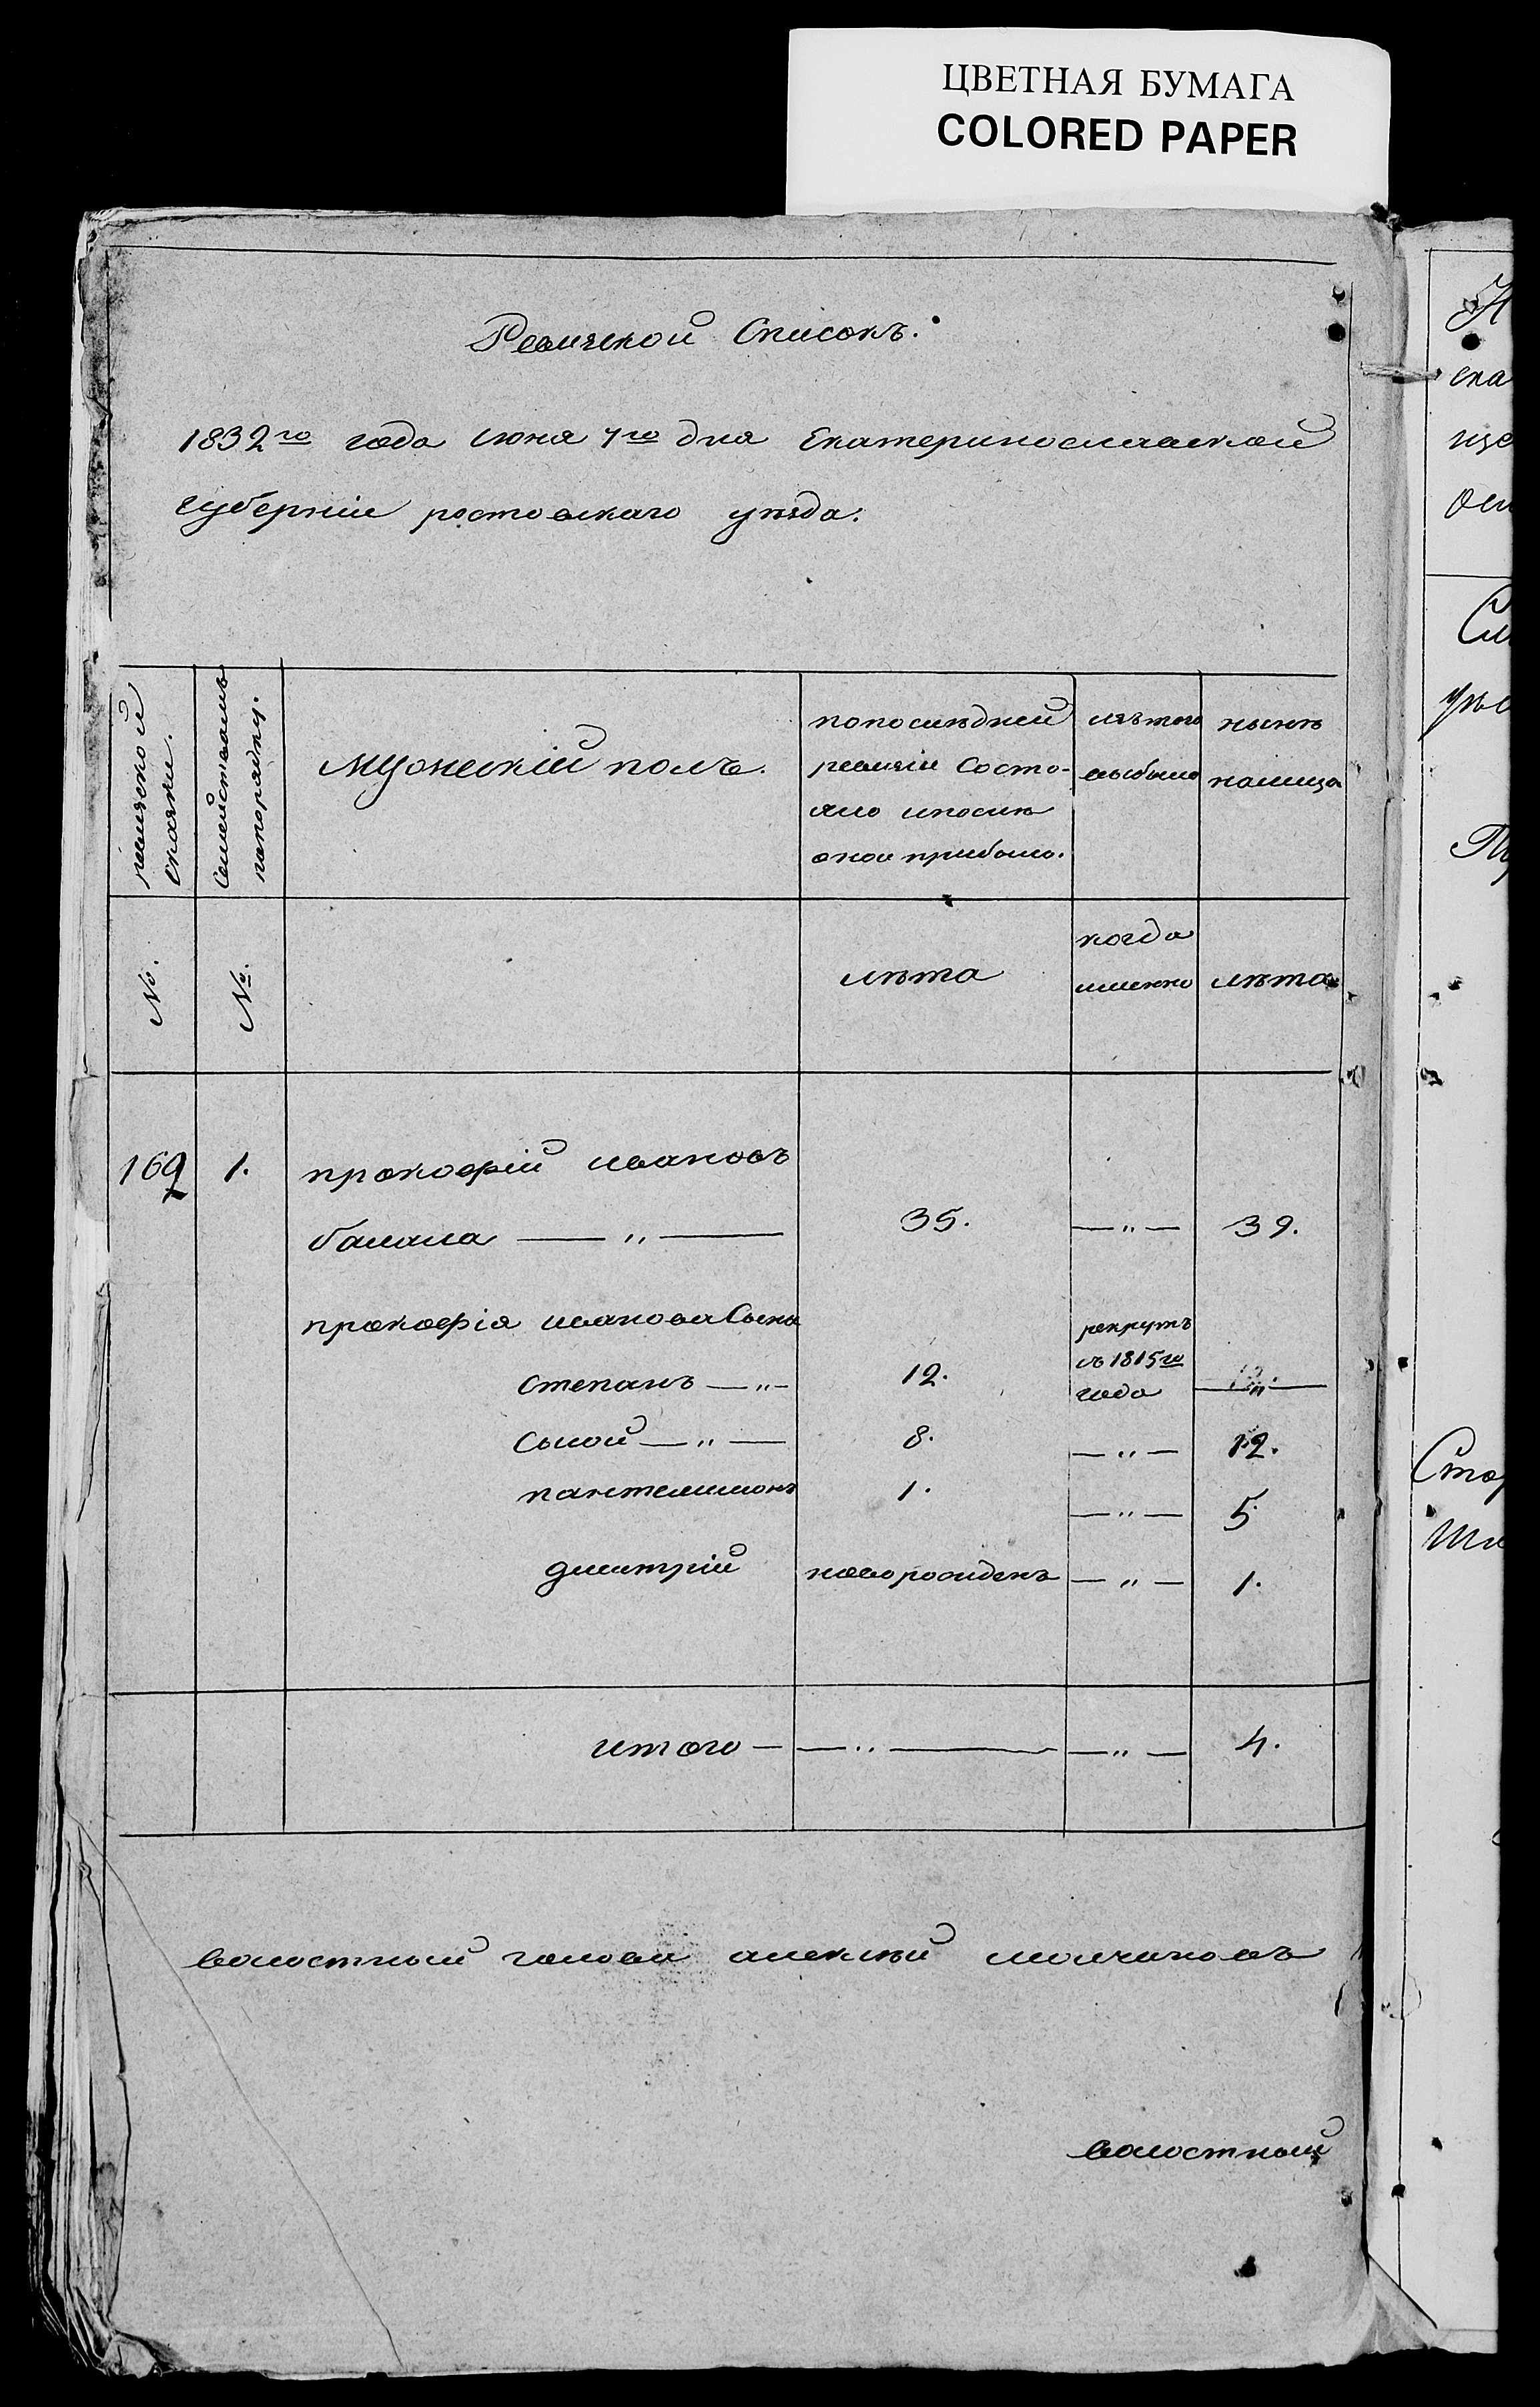 ЦВЕТНАЯ БУМАГА
COLORED PAPER
Ревизской Списокъ.
1832го года июня 7го дня Екатеринославской
губернии ростовского уѣзда.
ревизской сказки.
Семействамъ попорядку.
мужескій полъ.
попоследней ревизіи Состояло ипослѣ оной прибыло.
изътого выбыло
нынѣ налицо
№.
№.
лѣта
когда именно
лѣта
169 1. прокофій ивановъ
балала — „ — 35. — „ — 39.
прокофія иванова Сына
степанъ — „ — 12. рекрутъ въ 1815го года — „ —
Сысой — „ — 8. — „ — 12.
пантелимонъ 1. — „ — 5
дмитрій новорожденъ — „ — 1.
итого — — „ — — „ — 4.
волостный голова алексѣй молчановъ
волостный
ска
Стор